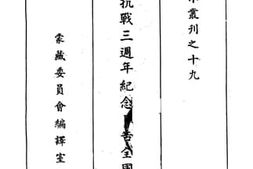 叢刊之十九
抗戰三週年紀念日告全國
蒙藏委員會編譯室